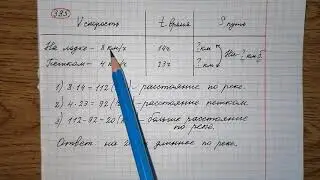 395
V скорость t время S путь
На лодке - 8 км/ч 14ч ?км
На ? км б.
Пешком - 4 км/ч 23ч ?км
1) 8·14=112(км) - расстояние по реке.
2) 4·23=92(км) - расстояние пешком.
3) 112-92=20(км) - больше расстояние
по реке.
Ответ: на 20 длиннее по реке.